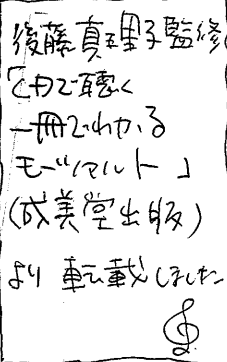 後藤真理子監修
「CDで聴く
一冊でわかる
モーツァルト」
(成美堂出版)
より転載しました